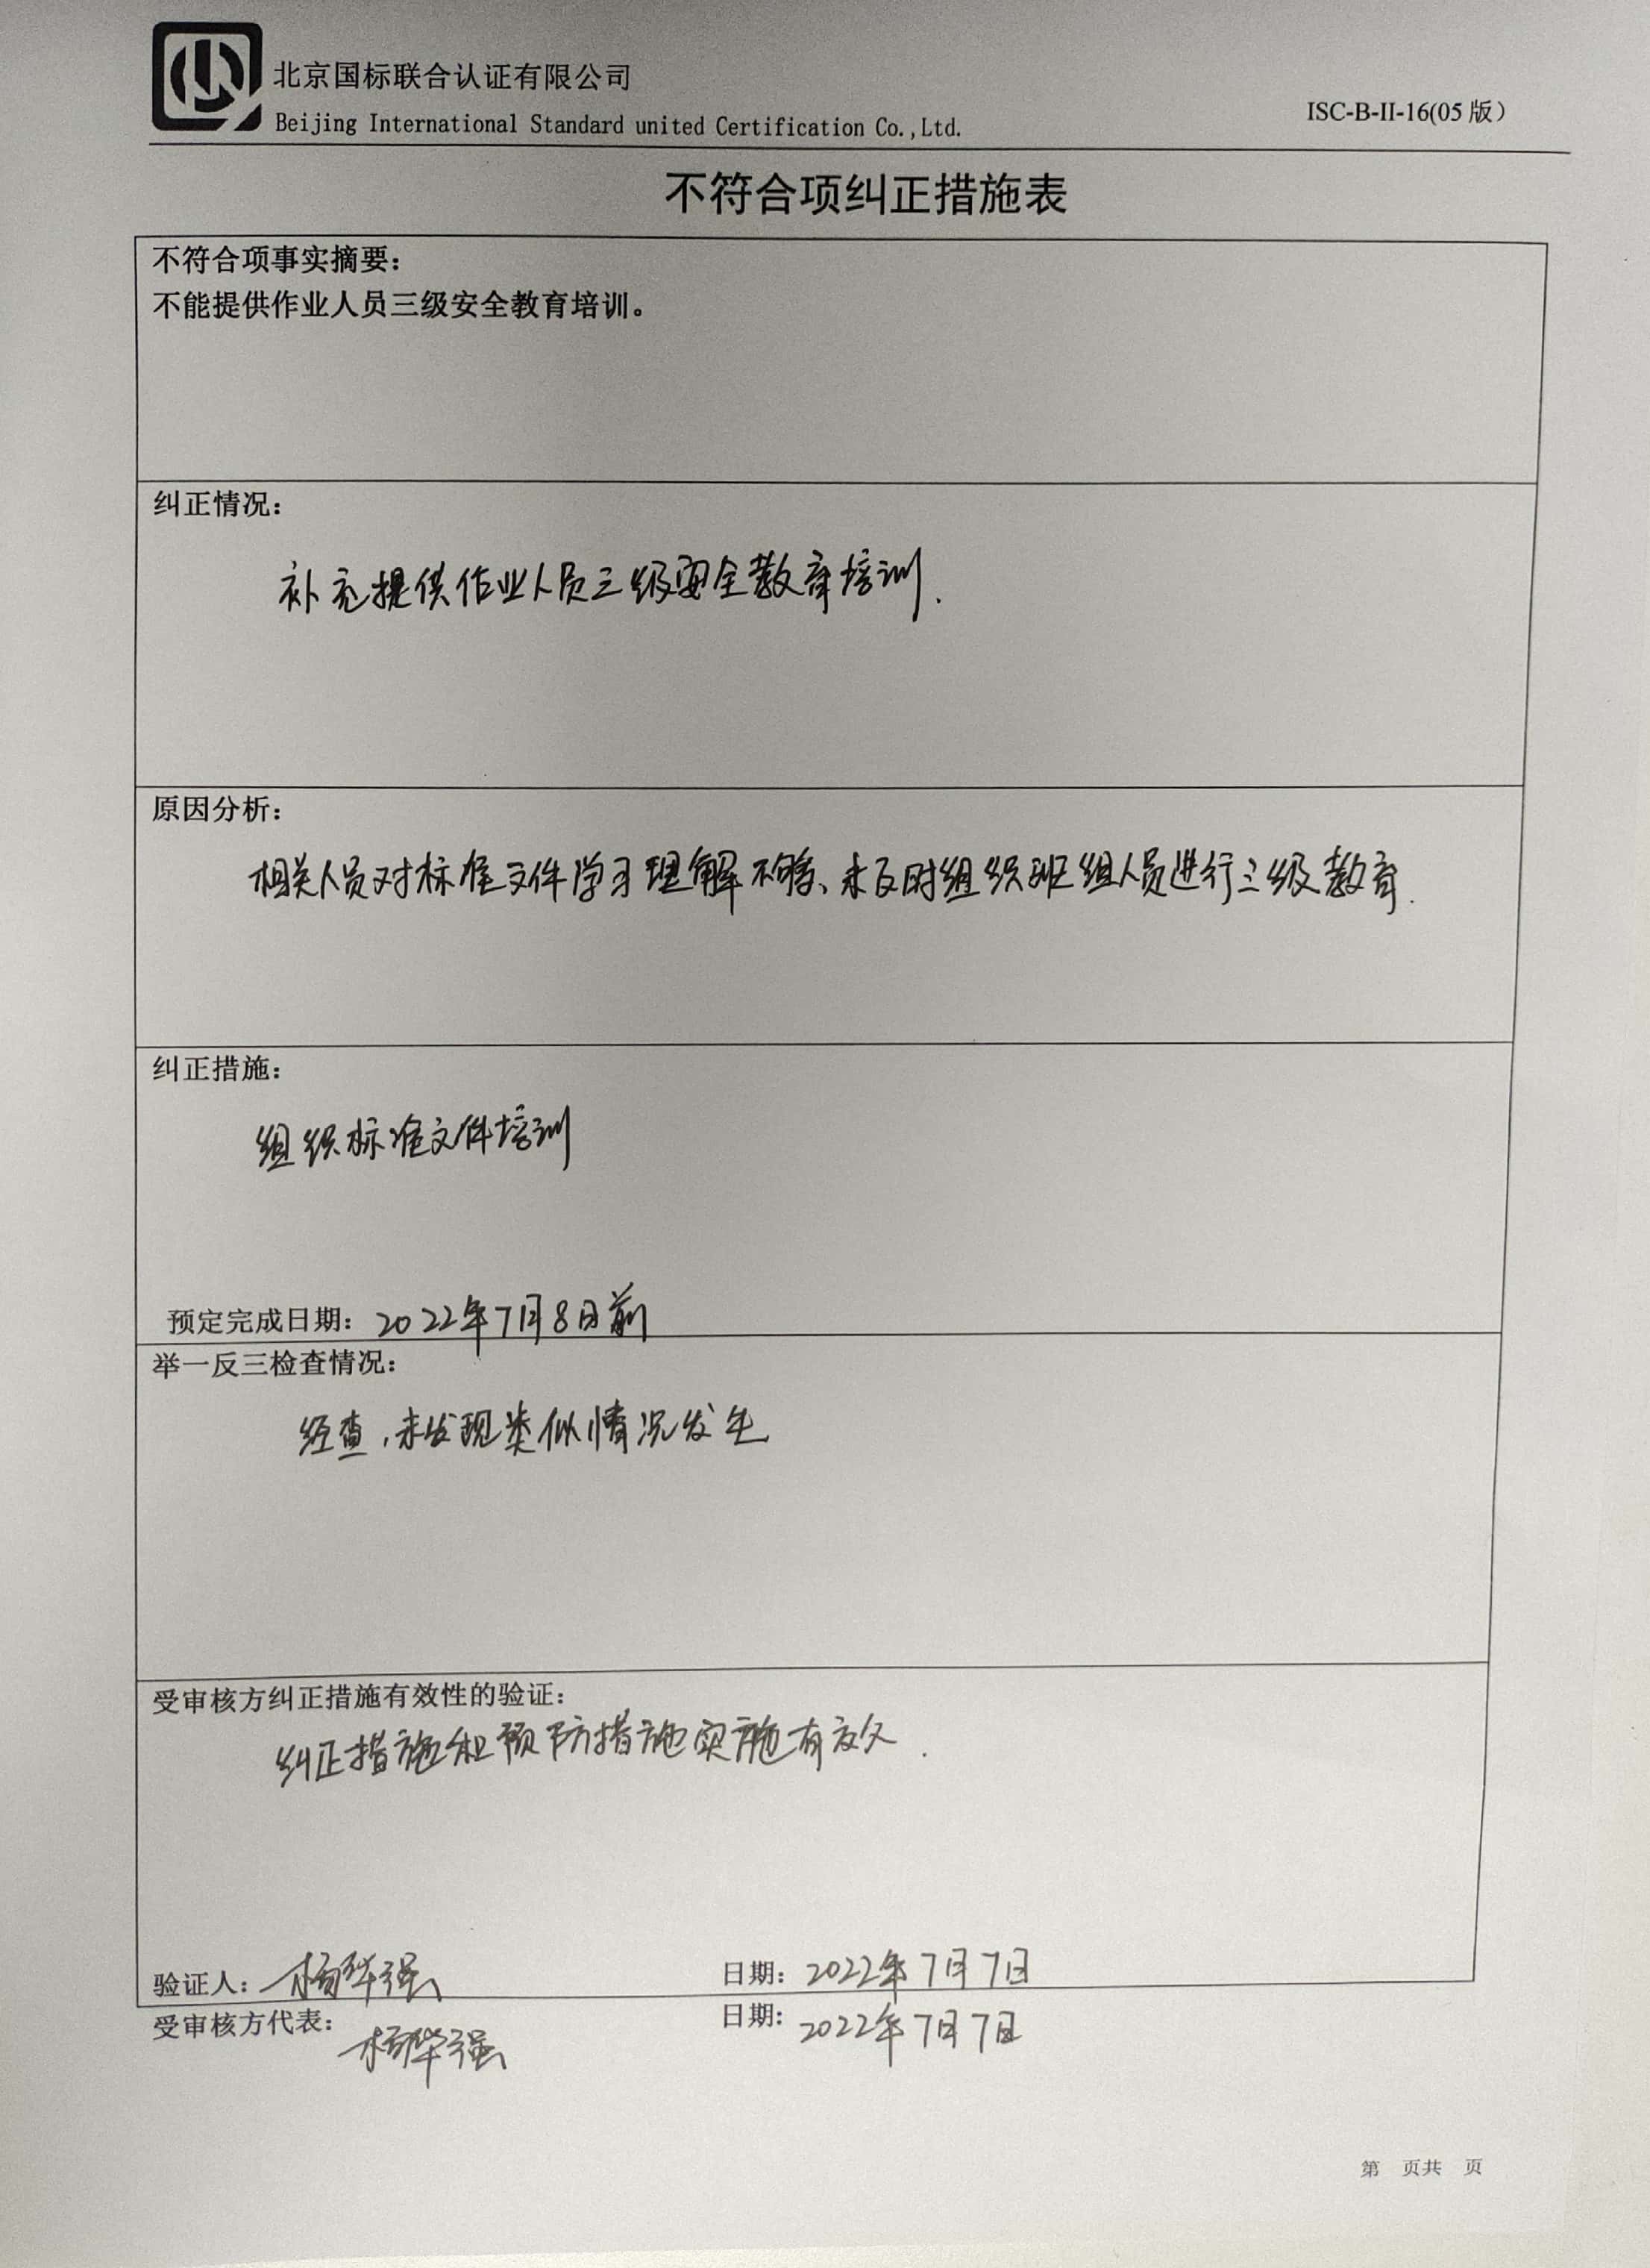 北京国标联合认证有限公司
Beijing International Standard united Certification Co.,Ltd.
ISC-B-II-16(05 版）
不符合项纠正措施表
不符合项事实摘要：
不能提供作业人员三级安全教育培训。
纠正情况：
补充提供作业人员三级安全教育培训.
原因分析：
相关人员对标准文件学习理解不够、未及时组织班组人员进行三级教育.
纠正措施：
组织标准文件培训
预定完成日期： 2022年7月8日前
举一反三检查情况：
经查，未发现类似情况发生
受审核方纠正措施有效性的验证：
纠正措施和预防措施实施有效.
验证人： 杨华强 日期： 2022年7月7日
受审核方代表： 杨华强 日期： 2022年7月7日
第 页共 页